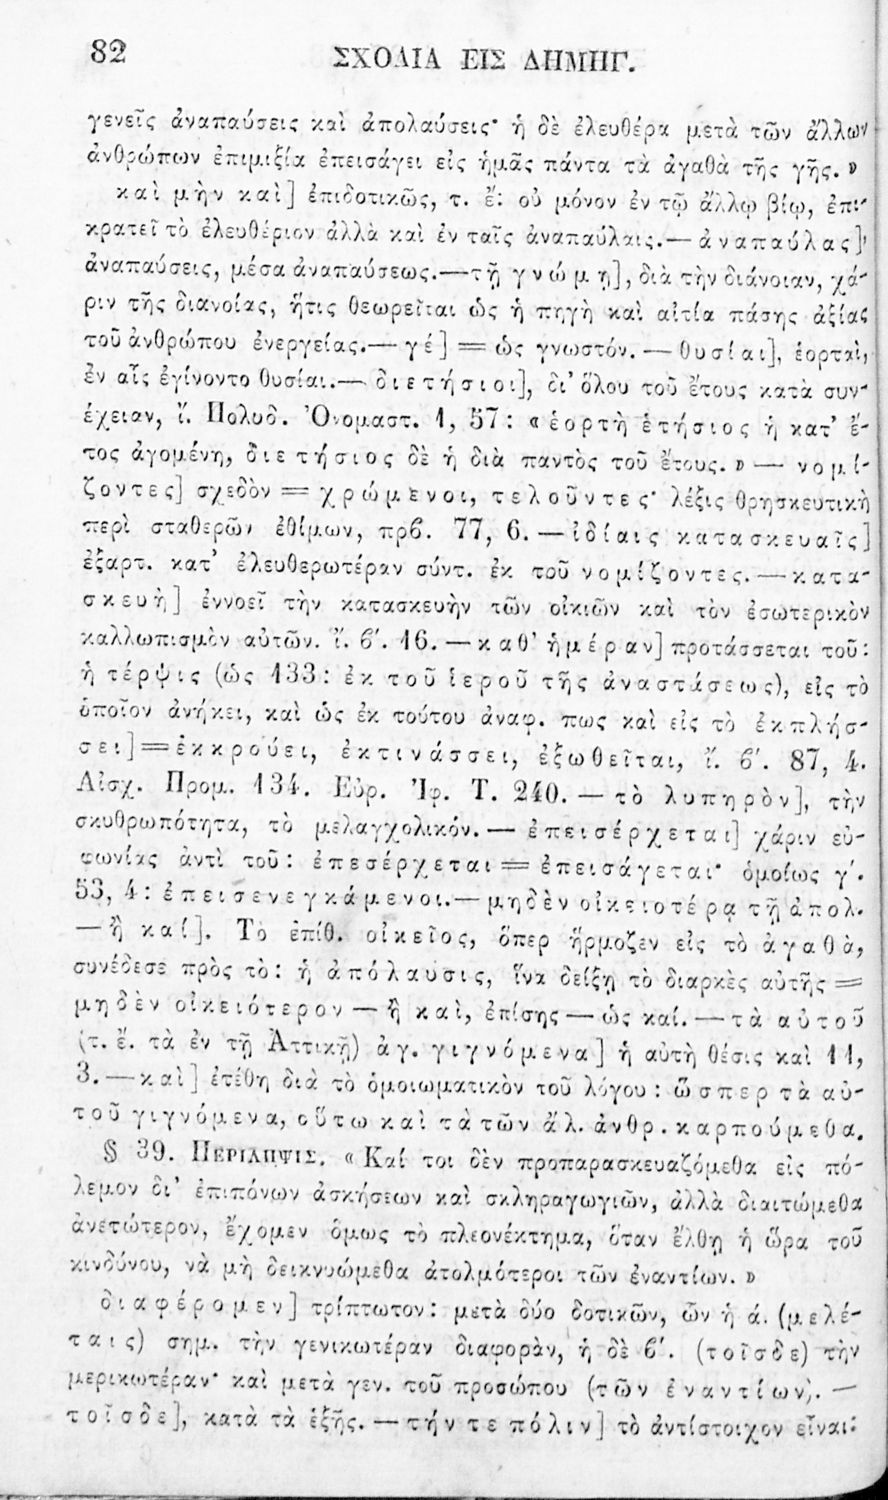 82 ΣΧΟΛΙΑ ΕΙΣ ΔΗΜΗΓ.
γενεῖς ἀναπαύσεις καὶ ἀπολαύσεις· ἡ δὲ ἐλευθέρα μετὰ τῶν ἄλλων
ἀνθρώπων ἐπιμιξία ἐπεισάγει εἰς ἡμᾶς πάντα τὰ ἀγαθὰ τῆς γῆς. »
καὶ μὴν καὶ] ἐπιδοτικῶς, τ. ἔ: οὐ μόνον ἐν τῷ ἄλλῳ βίῳ, ἐπι-
κρατεῖ τὸ ἐλευθέριον ἀλλὰ καὶ ἐν ταῖς ἀναπαύλαις.— ἀναπαύλας]
ἀναπαύσεις, μέσα ἀναπαύσεως.—τῇ γνώμῃ], διὰ τὴν διάνοιαν, χά-
ριν τῆς διανοίας, ἥτις θεωρεῖται ὡς ἡ πηγὴ καὶ αἰτία πάσης ἀξίας
τοῦ ἀνθρώπου ἐνεργείας.— γέ] = ὡς γνωστόν. — θυσίαι], ἑορταὶ,
ἐν αἷς ἐγίνοντο θυσίαι.— διετήσιοι], δι' ὅλου τοῦ ἔτους κατὰ συν-
έχειαν, ἴ. Πολυδ. Ὀνομαστ. 1, 57: « ἑορτὴ ἐτήσιος ἡ κατ' ἔ-
τος ἀγομένη, διετήσιος δὲ ἡ διὰ παντὸς τοῦ ἔτους. » — νομί-
ζοντες] σχεδὸν = χρώμενοι, τελοῦντες· λέξις θρησκευτικὴ
περὶ σταθερῶν ἐθίμων, πρβ. 77, 6. — ἰδίαις κατασκευαῖς]
ἐξαρτ. κατ' ἐλευθερωτέραν σύντ. ἐκ τοῦ νομίζοντες. — κατα-
σκευὴ] ἐννοεῖ τὴν κατασκευὴν τῶν οἰκιῶν καὶ τὸν ἐσωτερικὸν
καλλωπισμὸν αὐτῶν. ἴ. β'. 16. — καθ' ἡμέραν] προτάσσεται τοῦ:
ἡ τέρψις (ὡς 133: ἐκ τοῦ ἱεροῦ τῆς ἀναστάσεως), εἰς τὸ
ὁποῖον ἀνήκει, καὶ ὡς ἐκ τούτου ἀναφ. πως καὶ εἰς τὸ ἐκπλήσ-
σει] = ἐκκρούει, ἐκτινάσσει, ἐξωθεῖται, ἴ. β'. 87, 4.
Αἰσχ. Προμ. 134. Εὐρ. Ἰφ. Τ. 240. — τὸ λυπηρὸν], τὴν
σκυθρωπότητα, τὸ μελαγχολικόν. — ἐπεισέρχεται] χάριν εὐ-
φωνίας ἀντὶ τοῦ: ἐπεσέρχεται = ἐπεισάγεται· ὁμοίως γ'.
53, 4: ἐπεισενεγκάμενοι.— μηδὲν οἰκειοτέρᾳ τῇ ἀπολ.
— ἢ καί]. Τὸ ἐπίθ. οἰκεῖος, ὅπερ ἥρμοζεν εἰς τὸ ἀγαθὰ,
συνέδεσε πρὸς τὸ: ἡ ἀπόλαυσις, ἵνα δείξῃ τὸ διαρκὲς αὐτῆς =
μηδὲν οἰκειότερον — ἢ καὶ, ἐπίσης — ὡς καί. — τὰ αὐτοῦ
(τ. ἔ. τὰ ἐν τῇ Ἀττικῇ) ἀγ. γιγνόμενα] ἡ αὐτὴ θέσις καὶ 11,
3. — καὶ] ἐτέθη διὰ τὸ ὁμοιωματικὸν τοῦ λόγου : ὥσπερ τὰ αὐ-
τοῦ γιγνόμενα, οὕτω καὶ τὰ τῶν ἄλ. ἀνθρ. καρπούμεθα.
§ 39. ΠΕΡΙΛΗΨΙΣ. « Καί τοι δὲν προπαρασκευαζόμεθα εἰς πό-
λεμον δι' ἐπιπόνων ἀσκήσεων καὶ σκληραγωγιῶν, ἀλλὰ διαιτώμεθα
ἀνετώτερον, ἔχομεν ὅμως τὸ πλεονέκτημα, ὅταν ἔλθῃ ἡ ὥρα τοῦ
κινδύνου, νὰ μὴ δεικνυώμεθα ἀτολμότεροι τῶν ἐναντίων. »
διαφέρομεν] τρίπτωτον: μετὰ δύο δοτικῶν, ὧν ἡ ά. (μελέ-
ταις) σημ. τὴν γενικωτέραν διαφορὰν, ἡ δὲ β'. (τοῖσδε) τὴν
μερικωτέραν· καὶ μετὰ γεν. τοῦ προσώπου (τῶν ἐναντίων). —
τοῖσδε], κατὰ τὰ ἑξῆς. — τήν τε πόλιν] τὸ ἀντίστοιχον εἶναι: